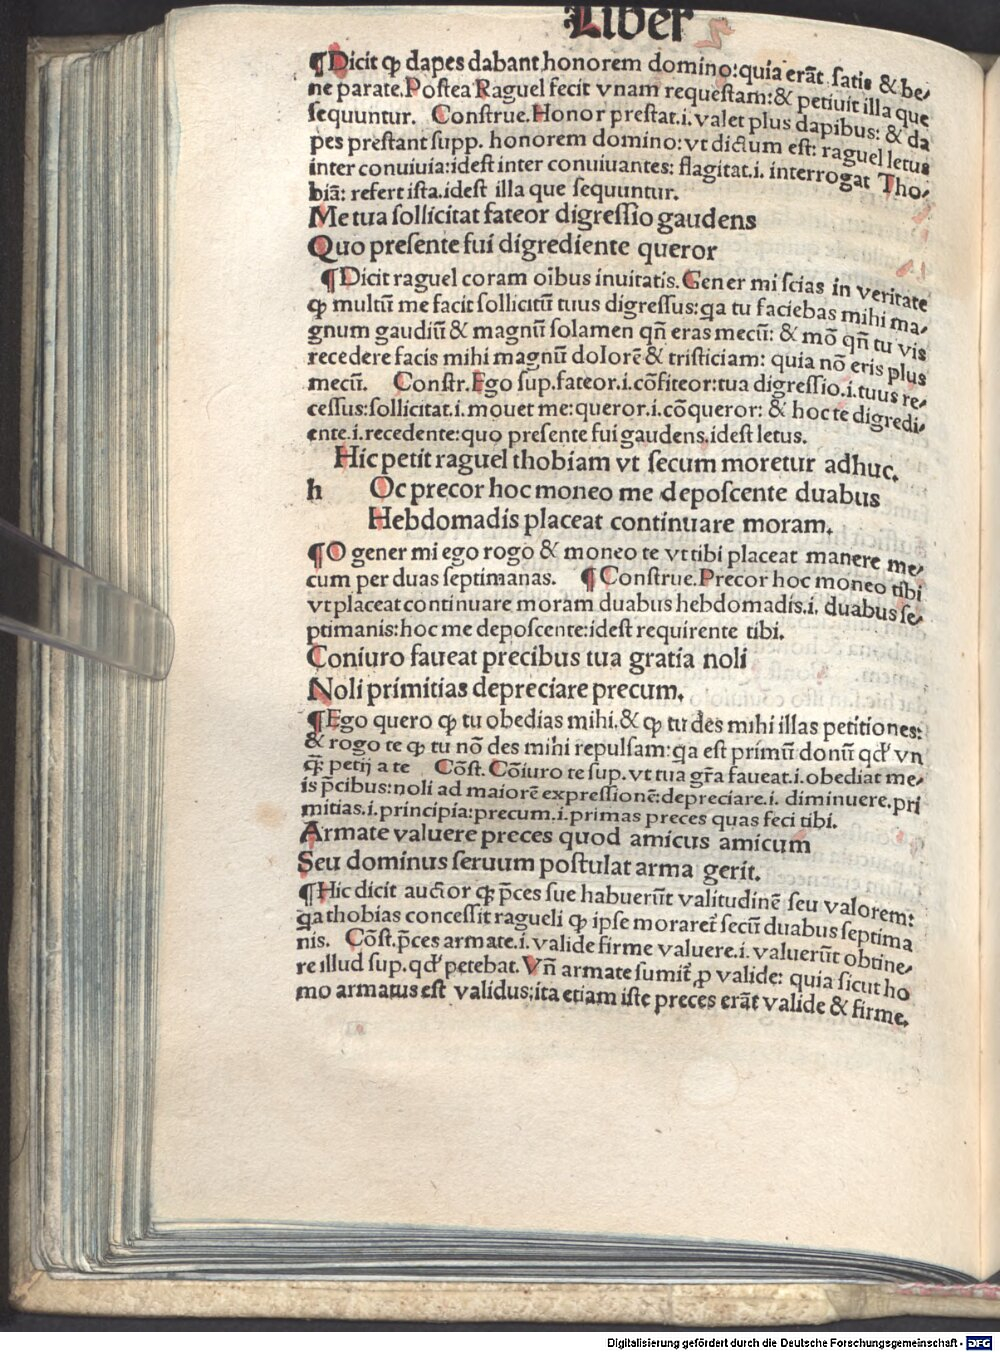 Liber
¶Dicit ꝙ dapes dabant honorem domino:quia erāt satis & be⸗
ne parate.Postea Raguel fecit vnam requestam:& petiuit illa que
sequuntur. Construe.Honor prestat.i.valet plus dapibus: & da
pes prestant supp. honorem domino:vt dictum est: raguel letus
inter conuiuia:idest inter conuiuantes: flagitat.i. interrogat Tho⸗
biā: refert ista.idest illa que sequuntur.
Me tua sollicitat fateor digressio gaudens
Quo presente fui digrediente queror
¶Dicit raguel coram oībus inuitatis.Gener mi scias in veritate
ꝙ multū me facit sollicitū tuus digressus:qa tu faciebas mihi ma⸗
gnum gaudiū & magnū solamen qn̄ eras mecū: & mō qn̄ tu vis
recedere facis mihi magnū dolorē & tristiciam: quia nō eris plus
mecū. Constr.Ego sup.fateor.i.cōfiteor:tua digressio.i.tuus re⸗
cessus:sollicitat.i.mouet me:queror.i.cōqueror: & hoc te digredi⸗
ente.i.recedente:quo presente fui gaudens.idest letus.
Hic petit raguel thobiam vt secum moretur adhuc.
h Oc precor hoc moneo me deposcente duabus
Hebdomadis placeat continuare moram.
¶O gener mi ego rogo & moneo te vt tibi placeat manere me⸗
cum per duas septimanas. ¶Construe.Precor hoc moneo tibi
vt placeat continuare moram duabus hebdomadis.i. duabus se⸗
ptimanis:hoc me deposcente:idest requirente tibi.
Coniuro faueat precibus tua gratia noli
Noli primitias depreciare precum.
¶Ego quero ꝙ tu obedias mihi.& ꝙ tu des mihi illas petitiones:
& rogo te ꝙ tu nō des mihi repulsam:qa est primū donū qd' vn
q̄ȝ petij a te Cōst. Cōiuro te sup. vt tua gr̄a faueat.i.obediat me⸗
is p̄cibus:noli ad maiorē expressionē:depreciare.i. diminuere.pri
mitias.i.principia:precum.i.primas preces quas feci tibi.
Armate valuere preces quod amicus amicum
Seu dominus seruum postulat arma gerit.
¶Hic dicit auctor ꝙ p̄ces sue habuerūt valitudinē seu valorem:
qa thobias concessit ragueli ꝙ ipse moraret̄ secū duabus septima
nis. Cōst.p̄ces armate.i.valide firme valuere.i.valuerūt obtine⸗
re illud sup.qd' petebat.Vn̄ armate sumit̄ ꝓ valide: quia sicut ho
mo armatus est validus:ita etiam iste preces erāt valide & firme.
Digitalisierung gefördert durch die Deutsche Forschungsgemeinschaft - DFG